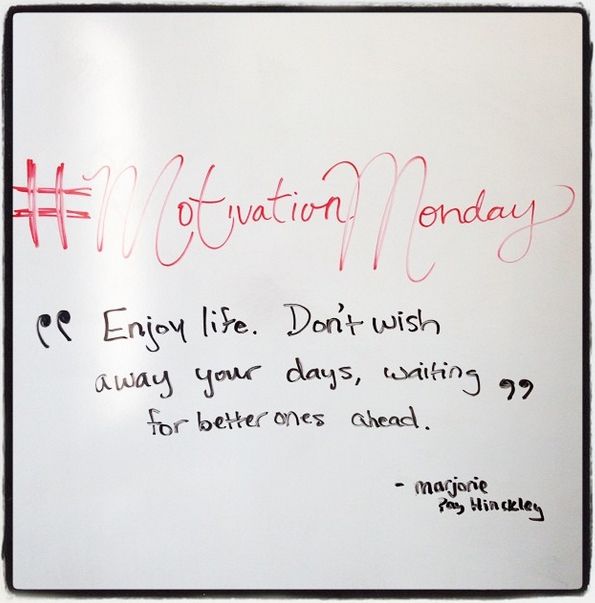 #MotivationMonday
“Enjoy life. Don't wish
away your days, waiting
for better ones ahead.”
- marjorie
Pay Hinckley